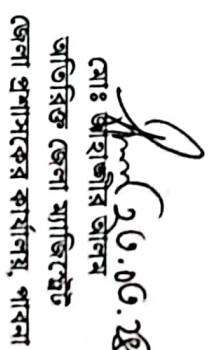 ২৩.০৩.২৪
মোঃ জাহাঙ্গীর আলম
অতিরিক্ত জেলা ম্যাজিস্ট্রেট
জেলা প্রশাসকের কার্যালয়, পাবনা